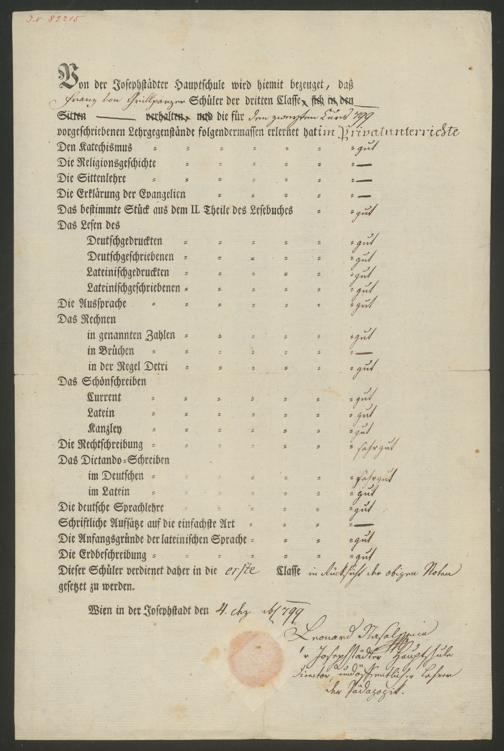 J.N. 82215
Von der Josephstädter Hauptschule wird hiemit bezeuget, daß
Franz von Grillparzer Schüler der dritten Classe, sich in den
Sitten verhalten, und die für den zweyten Curs 799
vorgeschriebenen Lehrgegenstände folgendermassen erlernet hat im Privatunterrichte
Den Katechismus = = = = = = = gut
Die Religionsgeschichte = = = = = = —
Die Sittenlehre = = = = = = = —
Die Erklärung der Evangelien = = = = = —
Das bestimmte Stück aus dem II. Theile des Lesebuches = = gut
Das Lesen des
Deutschgedruckten = = = = = = gut
Deutschgeschriebenen = = = = = = gut
Lateinischgedruckten = = = = = = gut
Lateinischgeschriebenen = = = = = = gut
Die Aussprache = = = = = = = gut
Das Rechnen
in genannten Zahlen = = = = = = gut
in Brüchen = = = = = = = —
in der Regel Detri = = = = = = gut
Das Schönschreiben
Current = = = = = = = gut
Latein = = = = = = = gut
Kanzley = = = = = = = gut
Die Rechtschreibung = = = = = = = sehr gut
Das Dictando-Schreiben
im Deutschen = = = = = = = sehr gut
im Latein = = = = = = = gut
Die deutsche Sprachlehre = = = = = = gut
Schriftliche Aufsätze auf die einfachste Art = = = = —
Die Anfangsgründe der lateinischen Sprache = = = = gut
Die Erdbeschreibung = = = = = = = gut
Dieser Schüler verdienet daher in die erste Classe in Rücksicht der obigen Noten
gesetzet zu werden.
Wien in der Josephstadt den 4. 799
Leonard
Josephstädter Hauptschule
Director, und öffentlicher Lehrer
der Pädagogik.